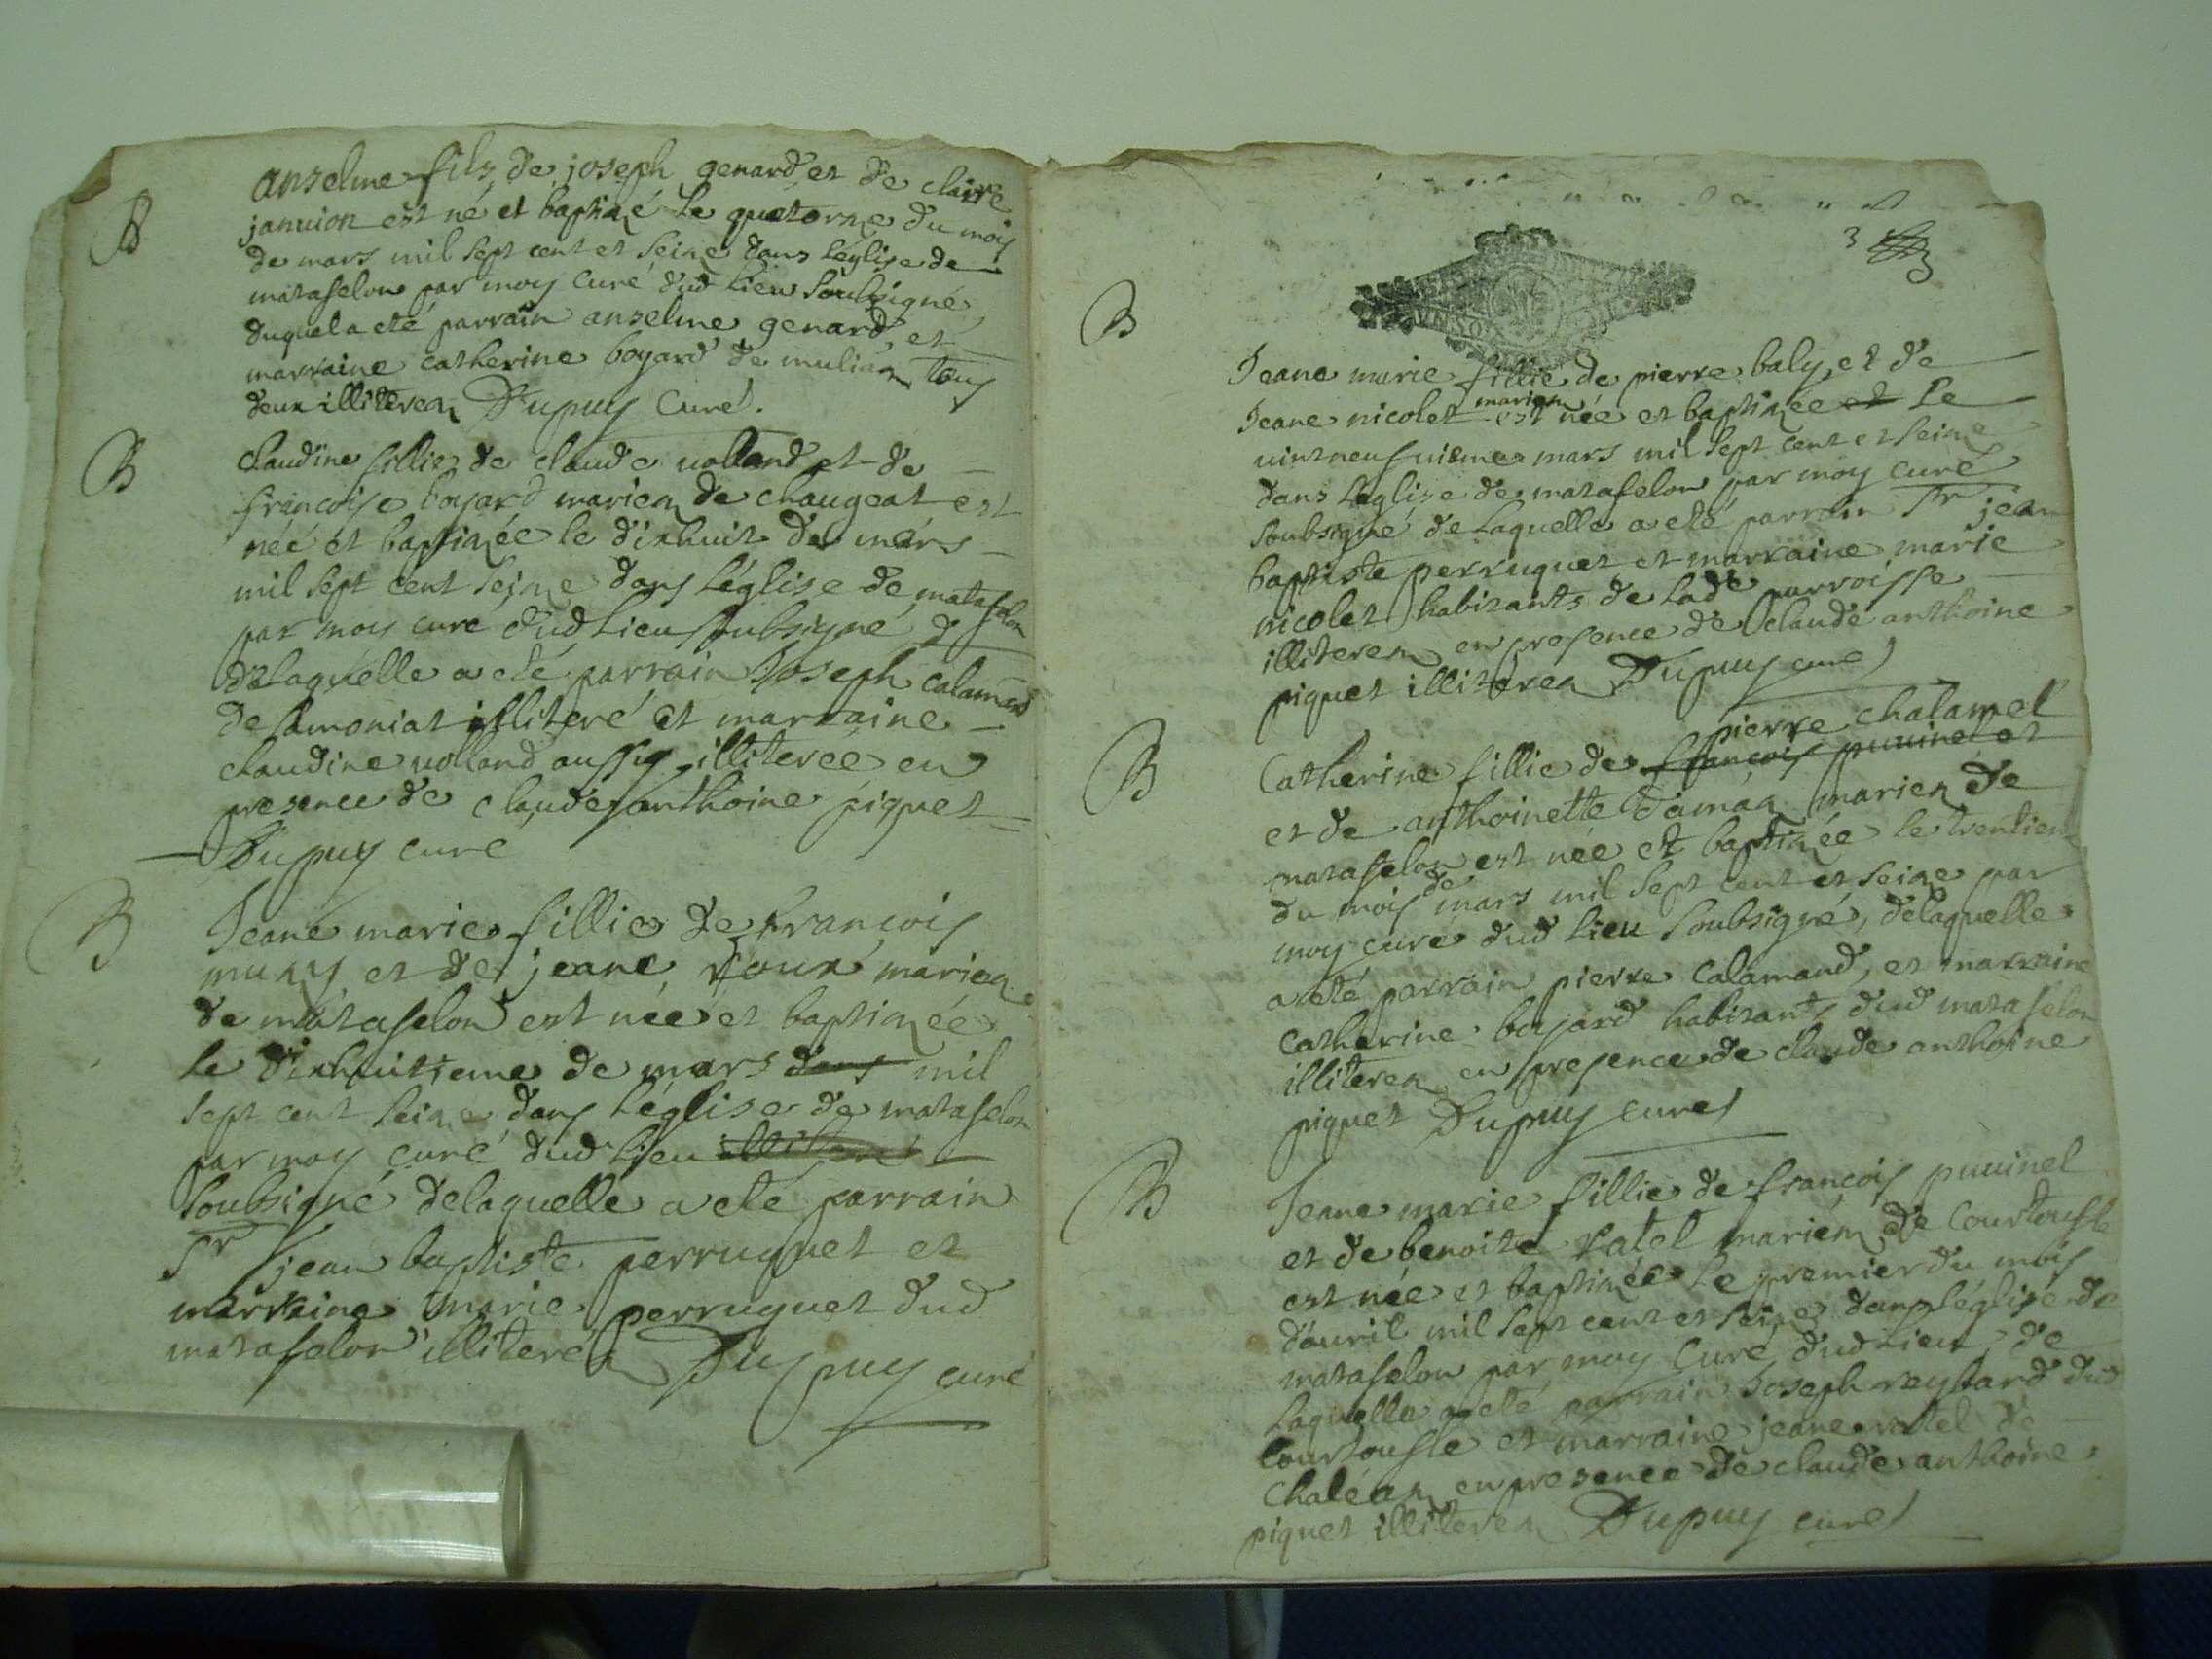 B
anselme fils de joseph genard et de claire
januion est né et baptizé le quatorze du mois
de mars mil sept cent et seize dans l'église de
matafelon par moy curé dud lieu soubsigné
duquel a eté parrain anselme genard, et
marraine catherine boyard de mulian tous
deux illiterez Dupuy curé.
B
claudine fillie de claude volland et de
françoise boyard mariez de chaugeat est
née et baptizée le dixhuit de mars
mil sept cent seize dans l'église de matafelon
par moy curé dud lieu soubsigné
delaquelle a eté parrain Joseph calamand
de samoniat illiteré et marraine
claudine volland aussy illiterée en
presence de claude anthoine piquet
Dupuy curé
B
Jeane marie fillie de françois
muny et de jeane roux mariez
de matafelon est née et baptizée
le dixhuitieme de mars dans mil
sept cent seize dans l'église de matafelon
par moy curé dud lieu
soubsigné delaquelle a eté parrain
Sr jean baptiste perruquet et
marraine marie perruquet dud
matafelon illiteréz Dupuy curé
3
B
Jeane marie fillie de pierre baly et de
Jeane nicolet mariez est née et baptizée et le
vintneufvieme mars mil sept cent et seize
dans l'église de matafelon par moy curé
soubsigné de laquelle a eté parrain Sr jean
baptiste perruquet et marraine marie
nicolet habitants de lade parroisse
illiterez en presence de claude anthoine
piquet illiterez Dupuy curé
B
pierre chalamel
Catherine fillie de françois puuinel et
et de anthoinette damáz mariez de
matafelon est née et baptizée le trentiem
du mois de mars mil sept cent et seize par
moy curé dud lieu soubsigné, delaquelle
a eté parrain pierre calamand, et marraine
catherine boyard habitants dud matafelon
illiterez en presence de claude anthoine
piquet Dupuy curé
B
Jeane marie fillie de françois puuinel
et de benoite ratel mariéz de Courtoufle
est née et baptizée le premier du mois
d'auril mil sept cent et seize dans l'église de
matafelon par moy curé dud lieu, de
laquelle a eté parrain Joseph reybard dud
Courtoufle et marraine jeane ratel de
Chaléaz en presence de claude anthoine
piquet illiterez Dupuy curé